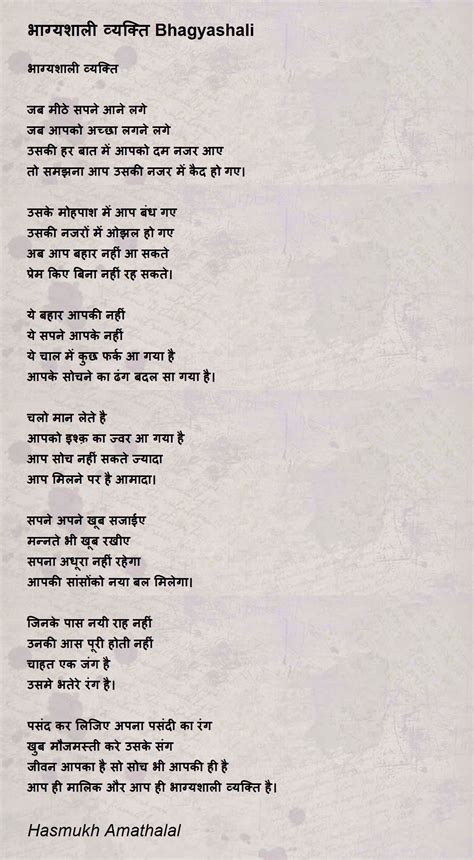 भाग्यशाली व्यक्ति Bhagyashali
भाग्यशाली व्यक्ति
जब मीठे सपने आने लगे
जब आपको अच्छा लगने लगे
उसकी हर बात में आपको दम नजर आए
तो समझना आप उसकी नजर में कैद हो गए।
उसके मोहपाश में आप बंध गए
उसकी नजरों में ओझल हो गए
अब आप बहार नहीं आ सकते
प्रेम किए बिना नहीं रह सकते।
ये बहार आपकी नहीं
ये सपने आपके नहीं
ये चाल में कुछ फर्क आ गया है
आपके सोचने का ढंग बदल सा गया है।
चलो मान लेते है
आपको इश्क़ का ज्वर आ गया है
आप सोच नहीं सकते ज्यादा
आप मिलने पर है आमादा।
सपने अपने खूब सजाईए
मन्नते भी खूब रखीए
सपना अधूरा नहीं रहेगा
आपकी सांसोंको नया बल मिलेगा।
जिनके पास नयी राह नहीं
उनकी आस पूरी होती नहीं
चाहत एक जंग है
उसमे भतेरे रंग है।
पसंद कर लिजिए अपना पसंदी का रंग
खुब मौजमस्ती करे उसके संग
जीवन आपका है सो सोच भी आपकी ही है
आप ही मालिक और आप ही भाग्यशाली व्यक्ति है।
Hasmukh Amathalal